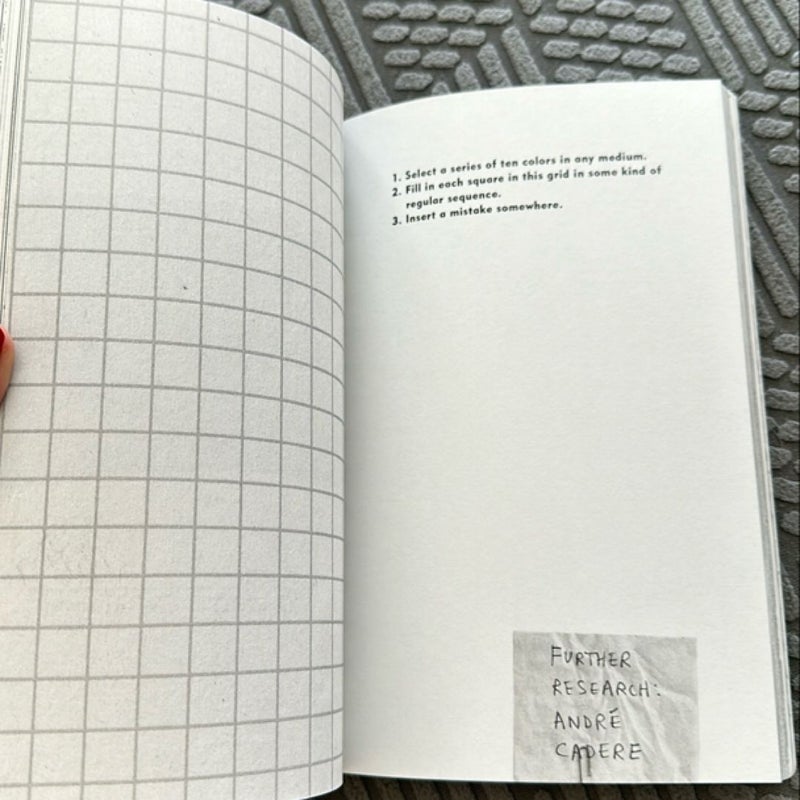 1. Select a series of ten colors in any medium.
2. Fill in each square in this grid in some kind of
regular sequence.
3. Insert a mistake somewhere.
FURTHER
RESEARCH:
ANDRÉ
CADERE